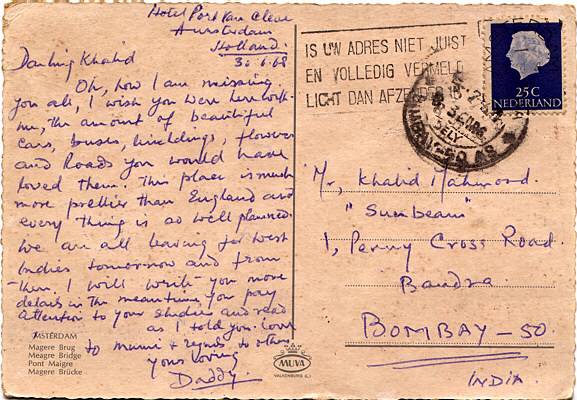 Hotel Port Van Cleve
Amsterdam
Holland.
30.6.68
Darling Khalid
Oh, how I am missing
you all, I wish you were here with
me, the amount of beautiful
cars, buses, buildings, flowers
and Roads you would have
loved them. This place is much
more prettier than England and
every thing is so well planned.
We are all leaving for West
Indies tomorrow and from
then. I will write you more
details in the meantime you pay
attention to your studies and read
as I told you. Love
to mumi & regards to others
yours loving
Daddy.
AMSTERDAM
Magere Brug
Meagre Bridge
Pont Maigre
Magere Brücke
MUVA
VALKENBURG (L.)
IS UW ADRES NIET JUIST
EN VOLLEDIG VERMELD
LICHT DAN AFZENDER IN
25C
NEDERLAND
BOMBAY-50
Mr, Khalid Mahmood.
"Sunbeam"
1, Perry Cross Road.
Bandra
BOMBAY-50.
INDIA.